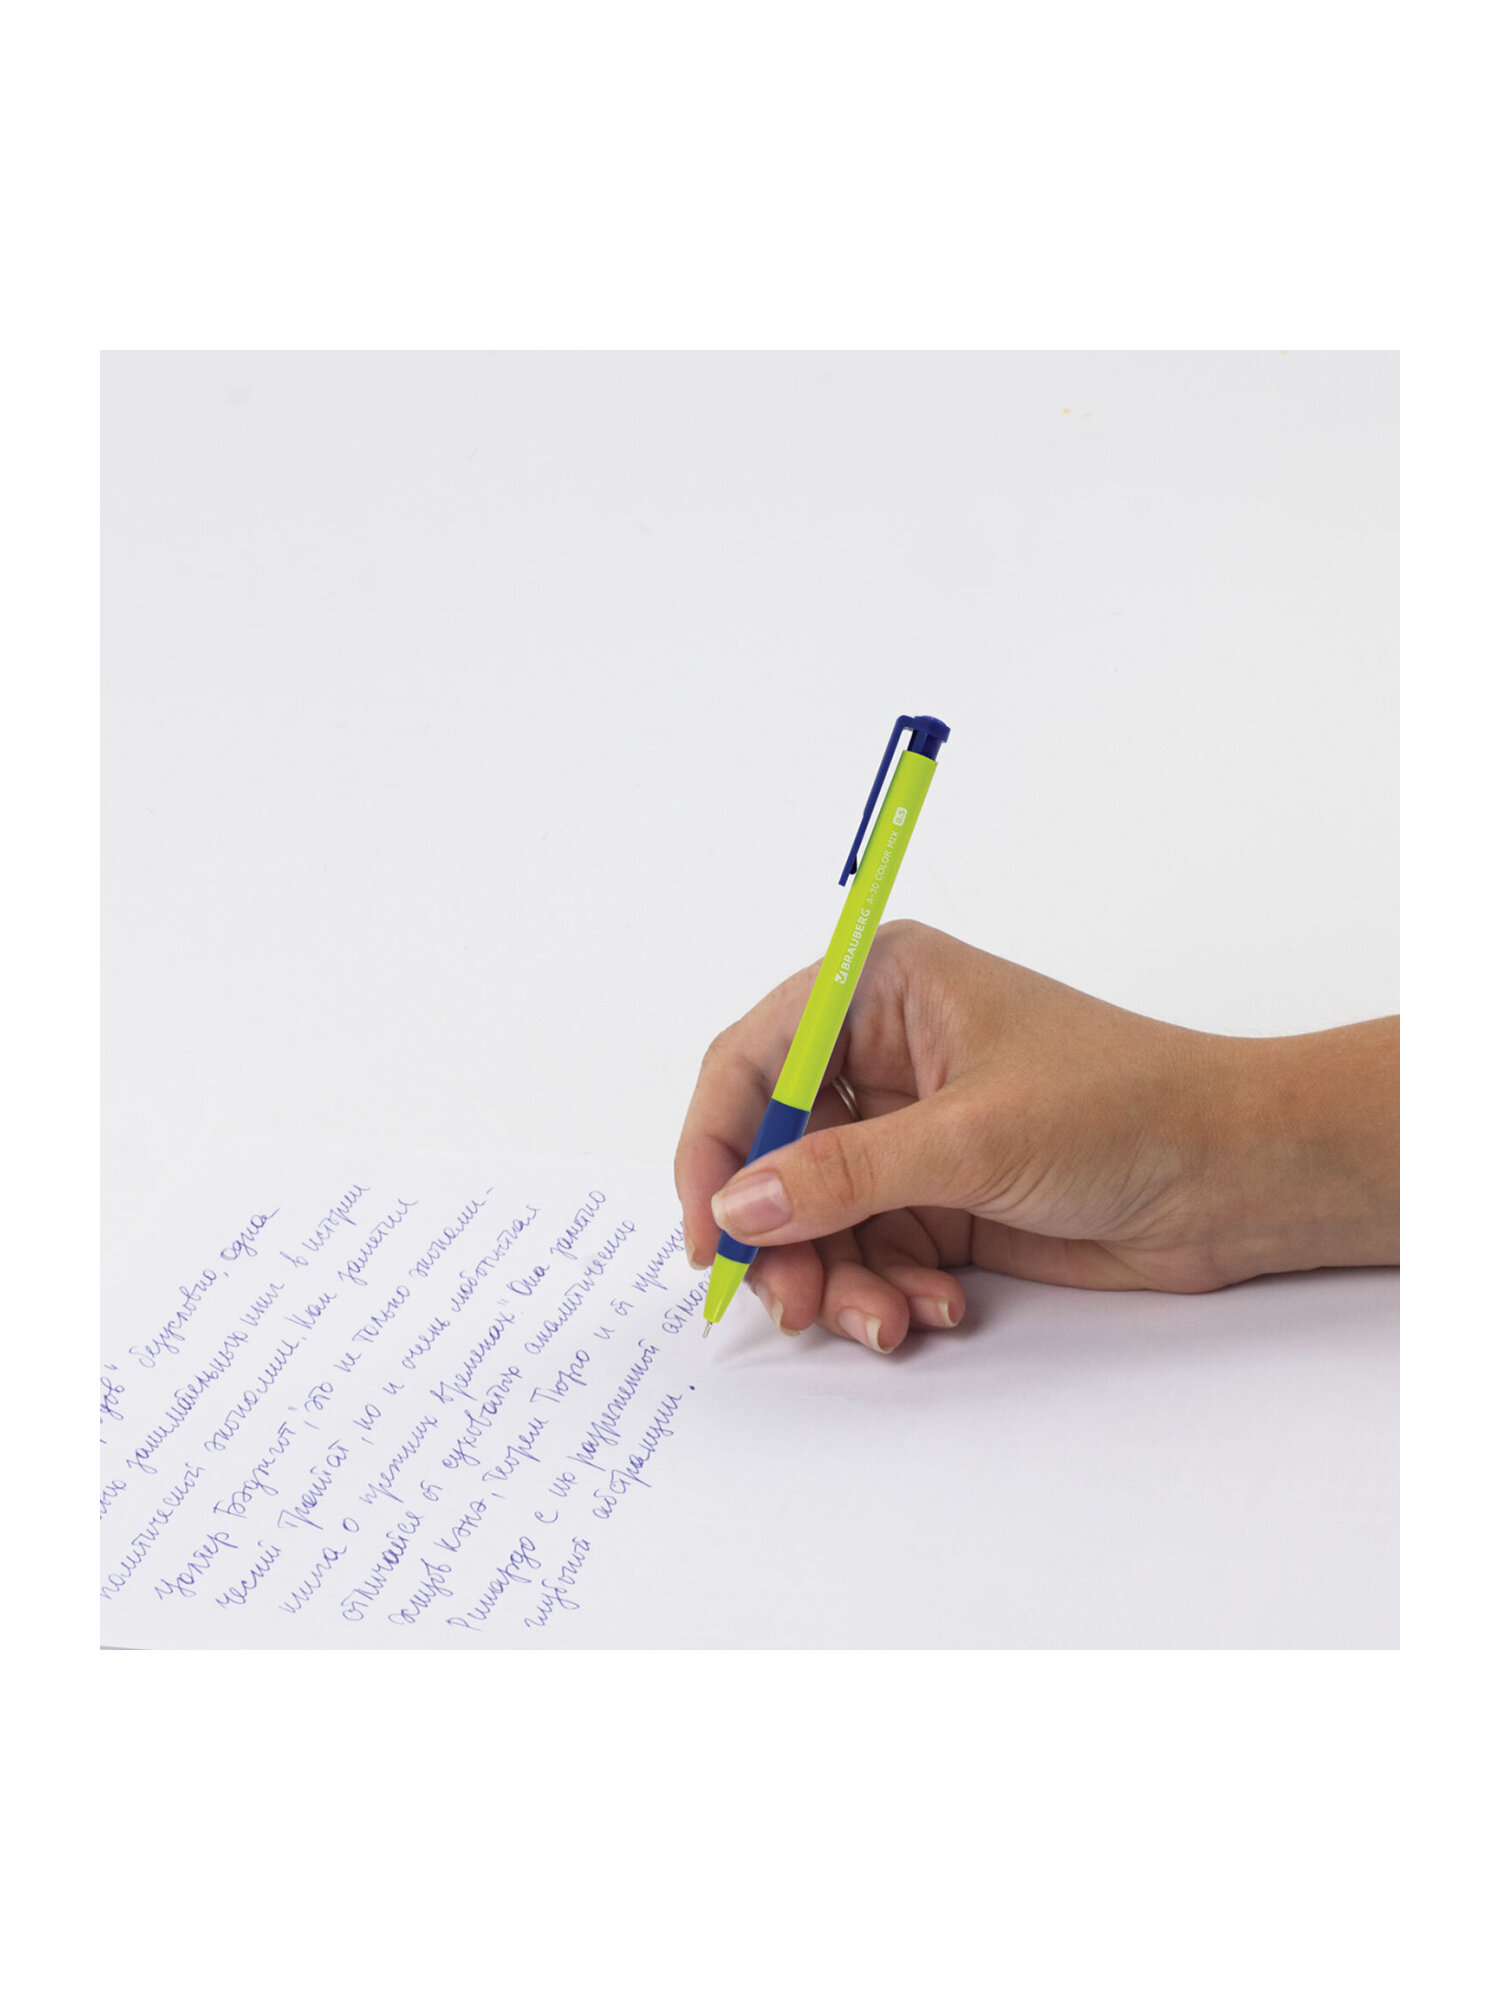 BRAUBERG A-30 COLOR MIX 0.5
безусловно, одна
занимательных книг в истории
политической экономии. Как заметил
Уолтер Бэджгот, "это не только экономи-
ческий трактат, но и очень любопытная
книга о прежних временах". Она заметно
отличается от суховатых аналитических
Кэнэ, теорем Тюрго и от
Рикардо с их разреженной
глубокой абстракции.